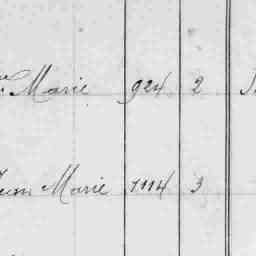 Marie 924 2
Jean Marie 1114 3